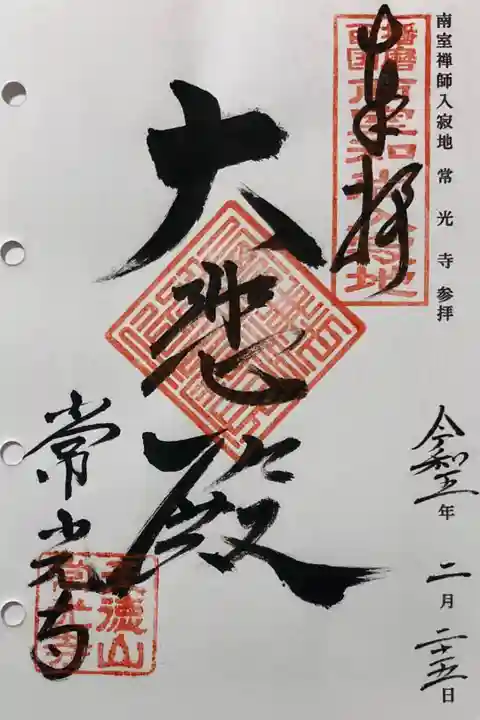 南室禅師入寂地　常光寺 参拝
奉拝
播磨西国
令和五年 二月 二十五日
大悲殿
常光寺